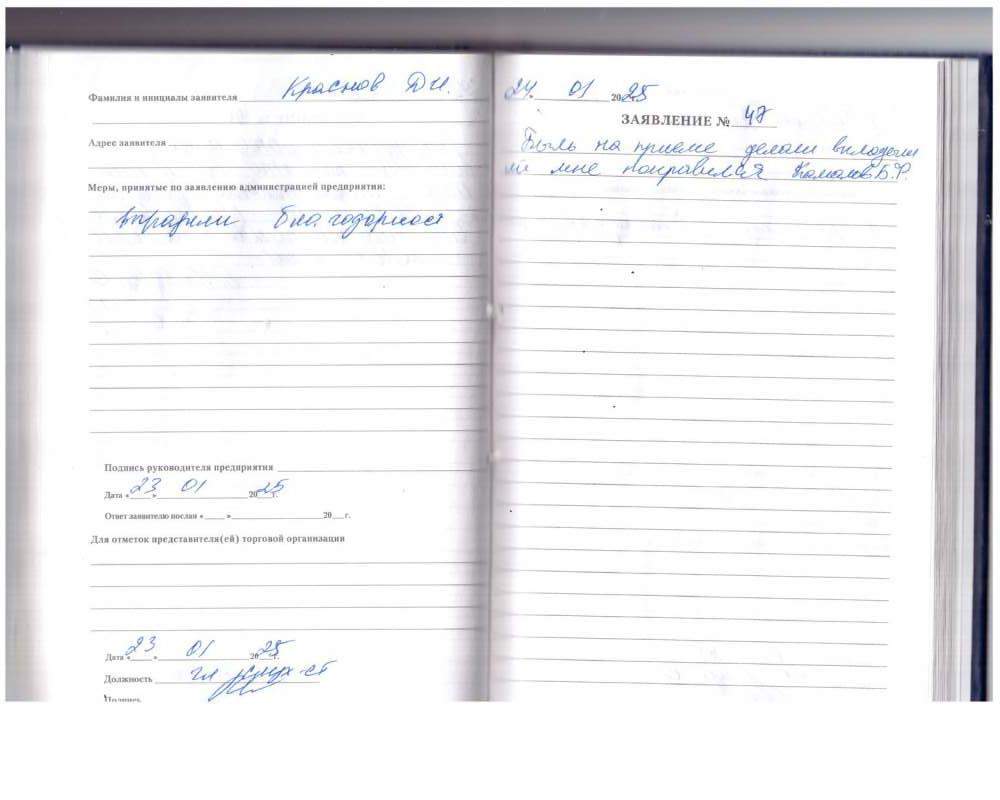 Фамилия и инициалы заявителя Краснов Д И.
Адрес заявителя
Меры, принятые по заявлению администрацией предприятия:
выразили благодарност
Подпись руководителя предприятия
Дата «23» 01 2025 г.
Ответ заявителю послан « » 20 г.
Для отметок представителя(ей) торговой организации
Дата «23» 01 2025 г.
Должность гл
Подпись
24. 01 2025
ЗАЯВЛЕНИЕ № 47
Быль на приеме делали
мне понравился Камалов Б.Ф.